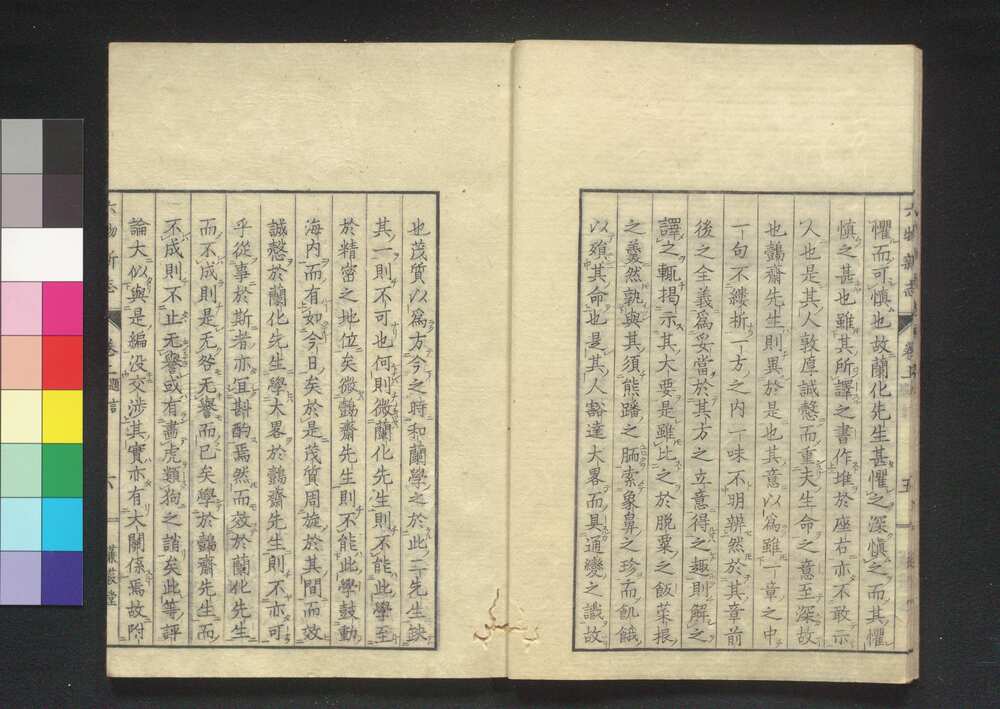 懼而可愼也故蘭化先生甚懼之深愼之而其懼
愼之甚也雖其所譯之書作堆於座右亦不敢示
人也是其人敦厚誠慤而重夫生命之意至深故
也鷧齋先生則異於是也其意以爲雖一章之中
一句不縷析一方之内一味不明辨然於其章前
後之全義爲妥當於其方之立意得之趣則解之
譯之輒揭示其大要是雖比之於脱粟之飯菜根
之羹然孰與其須熊蹯之胹索象鼻之珍而飢餓
以殞其命也是其人豁達大畧而具通變之識故
六物新志
卷上
五
也茂質以爲方今之時和蘭學之於此二先生缺
其一則不可也何則微蘭化先生則不能此學至
於精密之地位矣微鷧齋先生則不能此學鼓動
海内而有如今日矣於是茂質周旋於其間而效
誠慤於蘭化先生學大畧於鷧齋先生則不亦可
乎從事於斯者亦宜斟酌焉然而效於蘭化先生
而不成則是无咎无譽而已矣學於鷧齋先生而
不成則不止无譽或有畫虎類狗之誚矣此等評
論大似與是編没交涉其實亦有大關係焉故附
六物新志
卷上題言
六
蒹葭堂